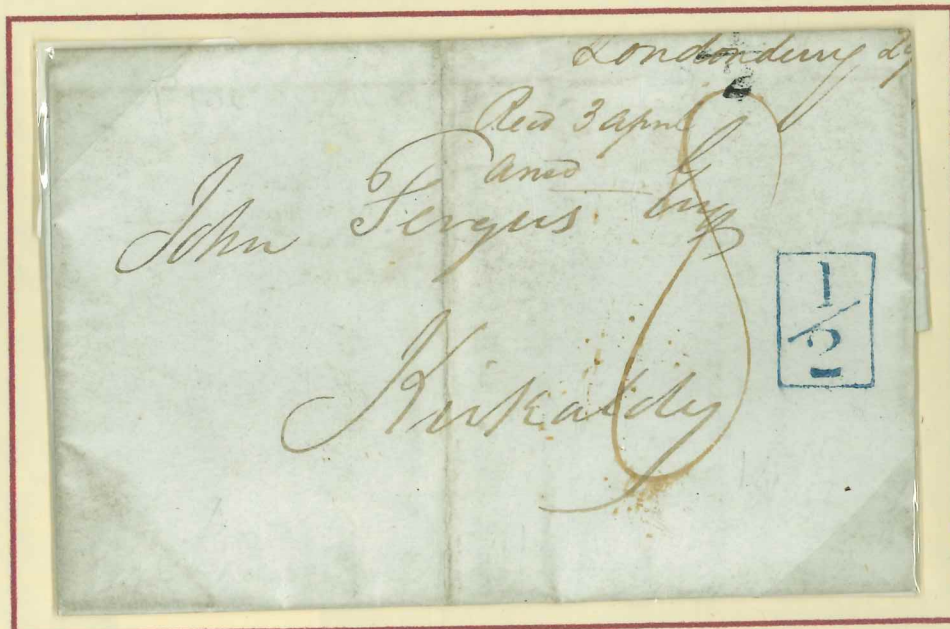 Londonderry 29
Recd 3 April
ansd
John Fergus Esq
Kirkaldy
8
1/2